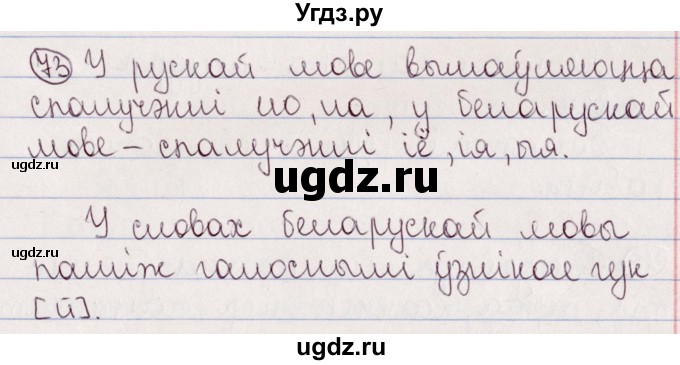 Угдз.ру
73 У рускай мове вымаўляюцца
спалучэнні ио, иа, у беларускай
мове – спалучэнні іё, ія, ыя.
ugdz.ru
ugdz.ru
ugdz.ru
У словах беларускай мовы
паміж галоснымі ўзнікае гук
[й].
ugdz.ru
ugdz.ru
ugdz.ru